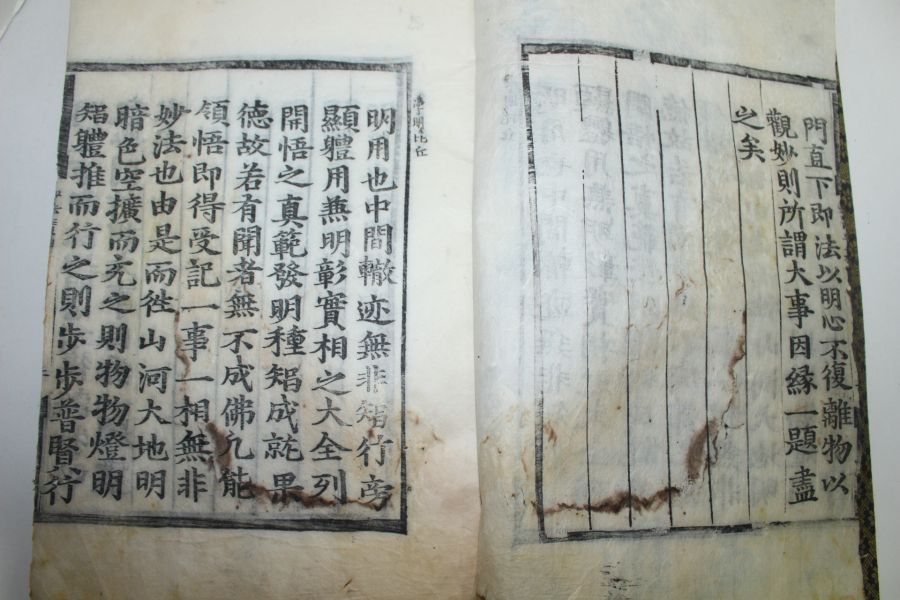 門直下即法以明心不復離物以
觀妙則所謂大事因縁一題盡
之矣
明用也中間轍迹無非智行旁
顯體用兼明彰實相之大全列
開悟之真範發明種智成就果
德故若有聞者無不成佛凡能
領悟即得受記一事一相無非
妙法也由是而徃山河大地明
暗色空擴而充之則物物燈明
智體推而行之則步步普賢行